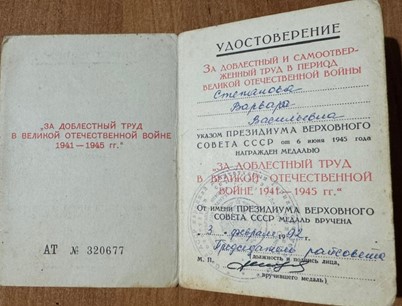 „ЗА ДОБЛЕСТНЫЙ ТРУД
В ВЕЛИКОЙ ОТЕЧЕСТВЕННОЙ ВОЙНЕ
1941—1945 гг."
АТ № 320677
УДОСТОВЕРЕНИЕ
ЗА ДОБЛЕСТНЫЙ И САМООТВЕР-
ЖЕННЫЙ ТРУД В ПЕРИОД
ВЕЛИКОЙ ОТЕЧЕСТВЕННОЙ ВОЙНЫ
Степанова
Варвара
Васильевна
УКАЗОМ ПРЕЗИДИУМА ВЕРХОВНОГО
СОВЕТА СССР от 6 июня 1945 года
НАГРАЖДЕН МЕДАЛЬЮ
„ЗА ДОБЛЕСТНЫЙ ТРУД
В ВЕЛИКОЙ ОТЕЧЕСТВЕННОЙ
ВОЙНЕ 1941—1945 гг."
От имени ПРЕЗИДИУМА ВЕРХОВНОГО
СОВЕТА СССР МЕДАЛЬ ВРУЧЕНА
3 февраля 19 92 г.
Председатель райсовета
М. П. (должность и подпись лица,
вручившего медаль)